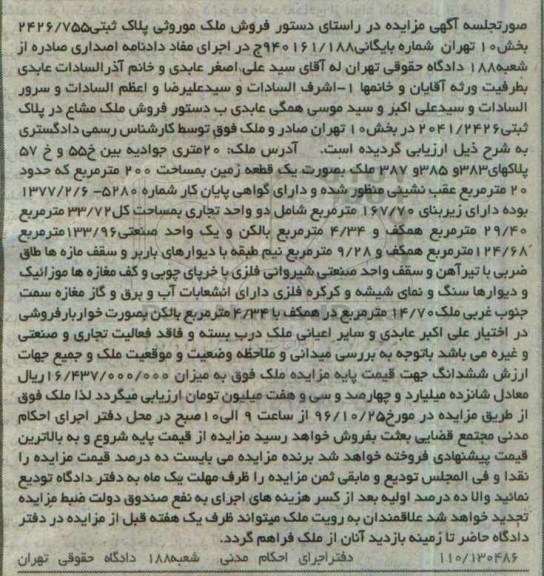 صورتجلسه آگهی مزایده در راستای دستور فروش ملک موروثی پلاک ثبتی۲۴۲۶/۷۵۵
بخش۱۰ تهران شماره بایگانی۹۴۰۱۶۱/۱۸۸ج در اجرای مفاد دادنامه اصداری صادره از
شعبه۱۸۸ دادگاه حقوقی تهران له آقای سید علی اصغر عابدی و خانم آذرالسادات عابدی
بطرفیت ورثه آقایان و خانمها ۱-اشرف السادات و سیدعلیرضا و اعظم السادات و سرور
السادات و سیدعلی اکبر و سید موسی همگی عابدی ب دستور فروش ملک مشاع در پلاک
ثبتی۲۰۴۱/۲۴۲۶ در بخش۱۰ تهران صادر و ملک فوق توسط کارشناس رسمی دادگستری
به شرح ذیل ارزیابی گردیده است. آدرس ملک: ۲۰متری جوادیه بین خ۵۵ و خ ۵۷
پلاکهای۳۸۳و ۳۸۵و ۳۸۷ ملک بصورت یک قطعه زمین بمساحت ۲۰۰ مترمربع که حدود
۲۰ مترمربع عقب نشینی منظور شده و دارای گواهی پایان کار شماره ۵۲۸۰-۱۳۷۷/۲/۶
بوده دارای زیربنای ۱۶۷/۷۰ مترمربع شامل دو واحد تجاری بمساحت کل۳۳/۷۲ مترمربع
۲۹/۴۰ مترمربع همکف و ۴/۳۴ مترمربع بالکن و یک واحد صنعتی۱۳۳/۹۶مترمربع
۱۲۴/۶۸مترمربع همکف و ۹/۲۸ مترمربع نیم طبقه با دیوارهای باربر و سقف مازه ها طاق
ضربی با تیرآهن و سقف واحد صنعتی شیروانی فلزی با خرپای چوبی و کف مغازه ها موزائیک
و دیوارها سنگ و نمای شیشه و کرکره فلزی دارای انشعابات آب و برق و گاز مغازه سمت
جنوب غربی ملک۱۴/۷۰ مترمربع در همکف با ۴/۳۴ مترمربع بالکن بصورت خواربارفروشی
در اختیار علی اکبر عابدی و سایر اعیانی ملک درب بسته و فاقد فعالیت تجاری و صنعتی
و غیره می باشد باتوجه به بررسی میدانی و ملاحظه وضعیت و موقعیت ملک و جمیع جهات
ارزش ششدانگ جهت قیمت پایه مزایده ملک فوق به میزان ۱۶/۴۳۷/۰۰۰/۰۰۰ریال
معادل شانزده میلیارد و چهارصد و سی و هفت میلیون تومان ارزیابی میگردد لذا ملک فوق
از طریق مزایده در مورخ۹۶/۱۰/۲۵ از ساعت ۹ الی۱۰صبح در محل دفتر اجرای احکام
مدنی مجتمع قضایی بعثت بفروش خواهد رسید مزایده از قیمت پایه شروع و به بالاترین
قیمت پیشنهادی فروخته خواهد شد برنده مزایده می بایست ده درصد قیمت مزایده را
نقدا و فی المجلس تودیع و مابقی ثمن مزایده را ظرف مهلت یک ماه به دفتر دادگاه تودیع
نمائید والا ده درصد اولیه بعد از کسر هزینه های اجرای به نفع صندوق دولت ضبط مزایده
تجدید خواهد شد علاقمندان به رویت ملک میتواند ظرف یک هفته قبل از مزایده در دفتر
دادگاه حاضر تا زمینه بازدید آنان از ملک فراهم گردد.
۱۱۰/۱۳۰۴۸۶ دفتراجرای احکام مدنی شعبه۱۸۸ دادگاه حقوقی تهران